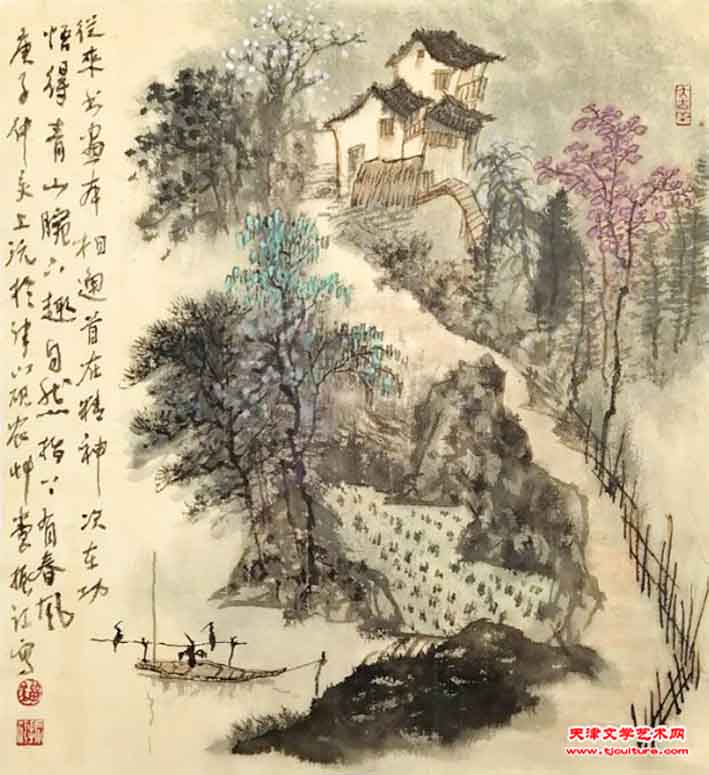 從來書畫本相通首在精神次在功
悟得青山腕下趣自然指下有春風
庚子仲夏上浣於津門硯農艸堂振江寫
天津文学艺术网
www.tjculture.com